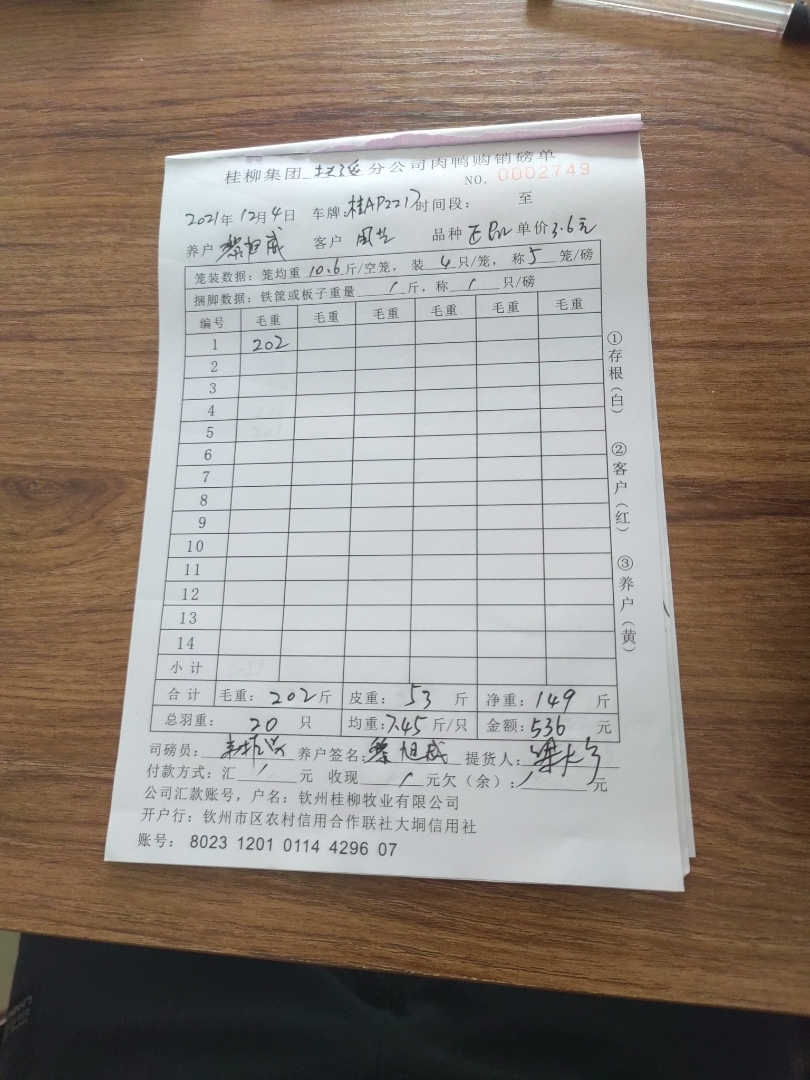 桂柳集团 分公司肉鸭购销磅单
NO. 0002749
2021年12月4日 车牌:桂AP2217 时间段: 至
养户 黎旭威 客户 品种 单价3.6元
笼装数据: 笼均重 10.6斤/空笼, 装 4只/笼, 称5 笼/磅
捆脚数据: 铁筐或板子重量 / 斤, 称 / 只/磅
编号 毛重 毛重 毛重 毛重 毛重 毛重
1 202
2
3
4
5
6
7
8
9
10
11
12
13
14
小计
合计 毛重: 202斤 皮重: 53 斤 净重: 149 斤
总羽重: 20 只 均重:7.45斤/只 金额:536 元
司磅员: 养户签名:黎旭威 提货人:
付款方式: 汇 / 元 收现 / 元欠(余): / 元
公司汇款账号, 户名: 钦州桂柳牧业有限公司
开户行: 钦州市区农村信用合作联社大垌信用社
账号: 8023 1201 0114 4296 07
①存根(白)
②客户(红)
③养户(黄)